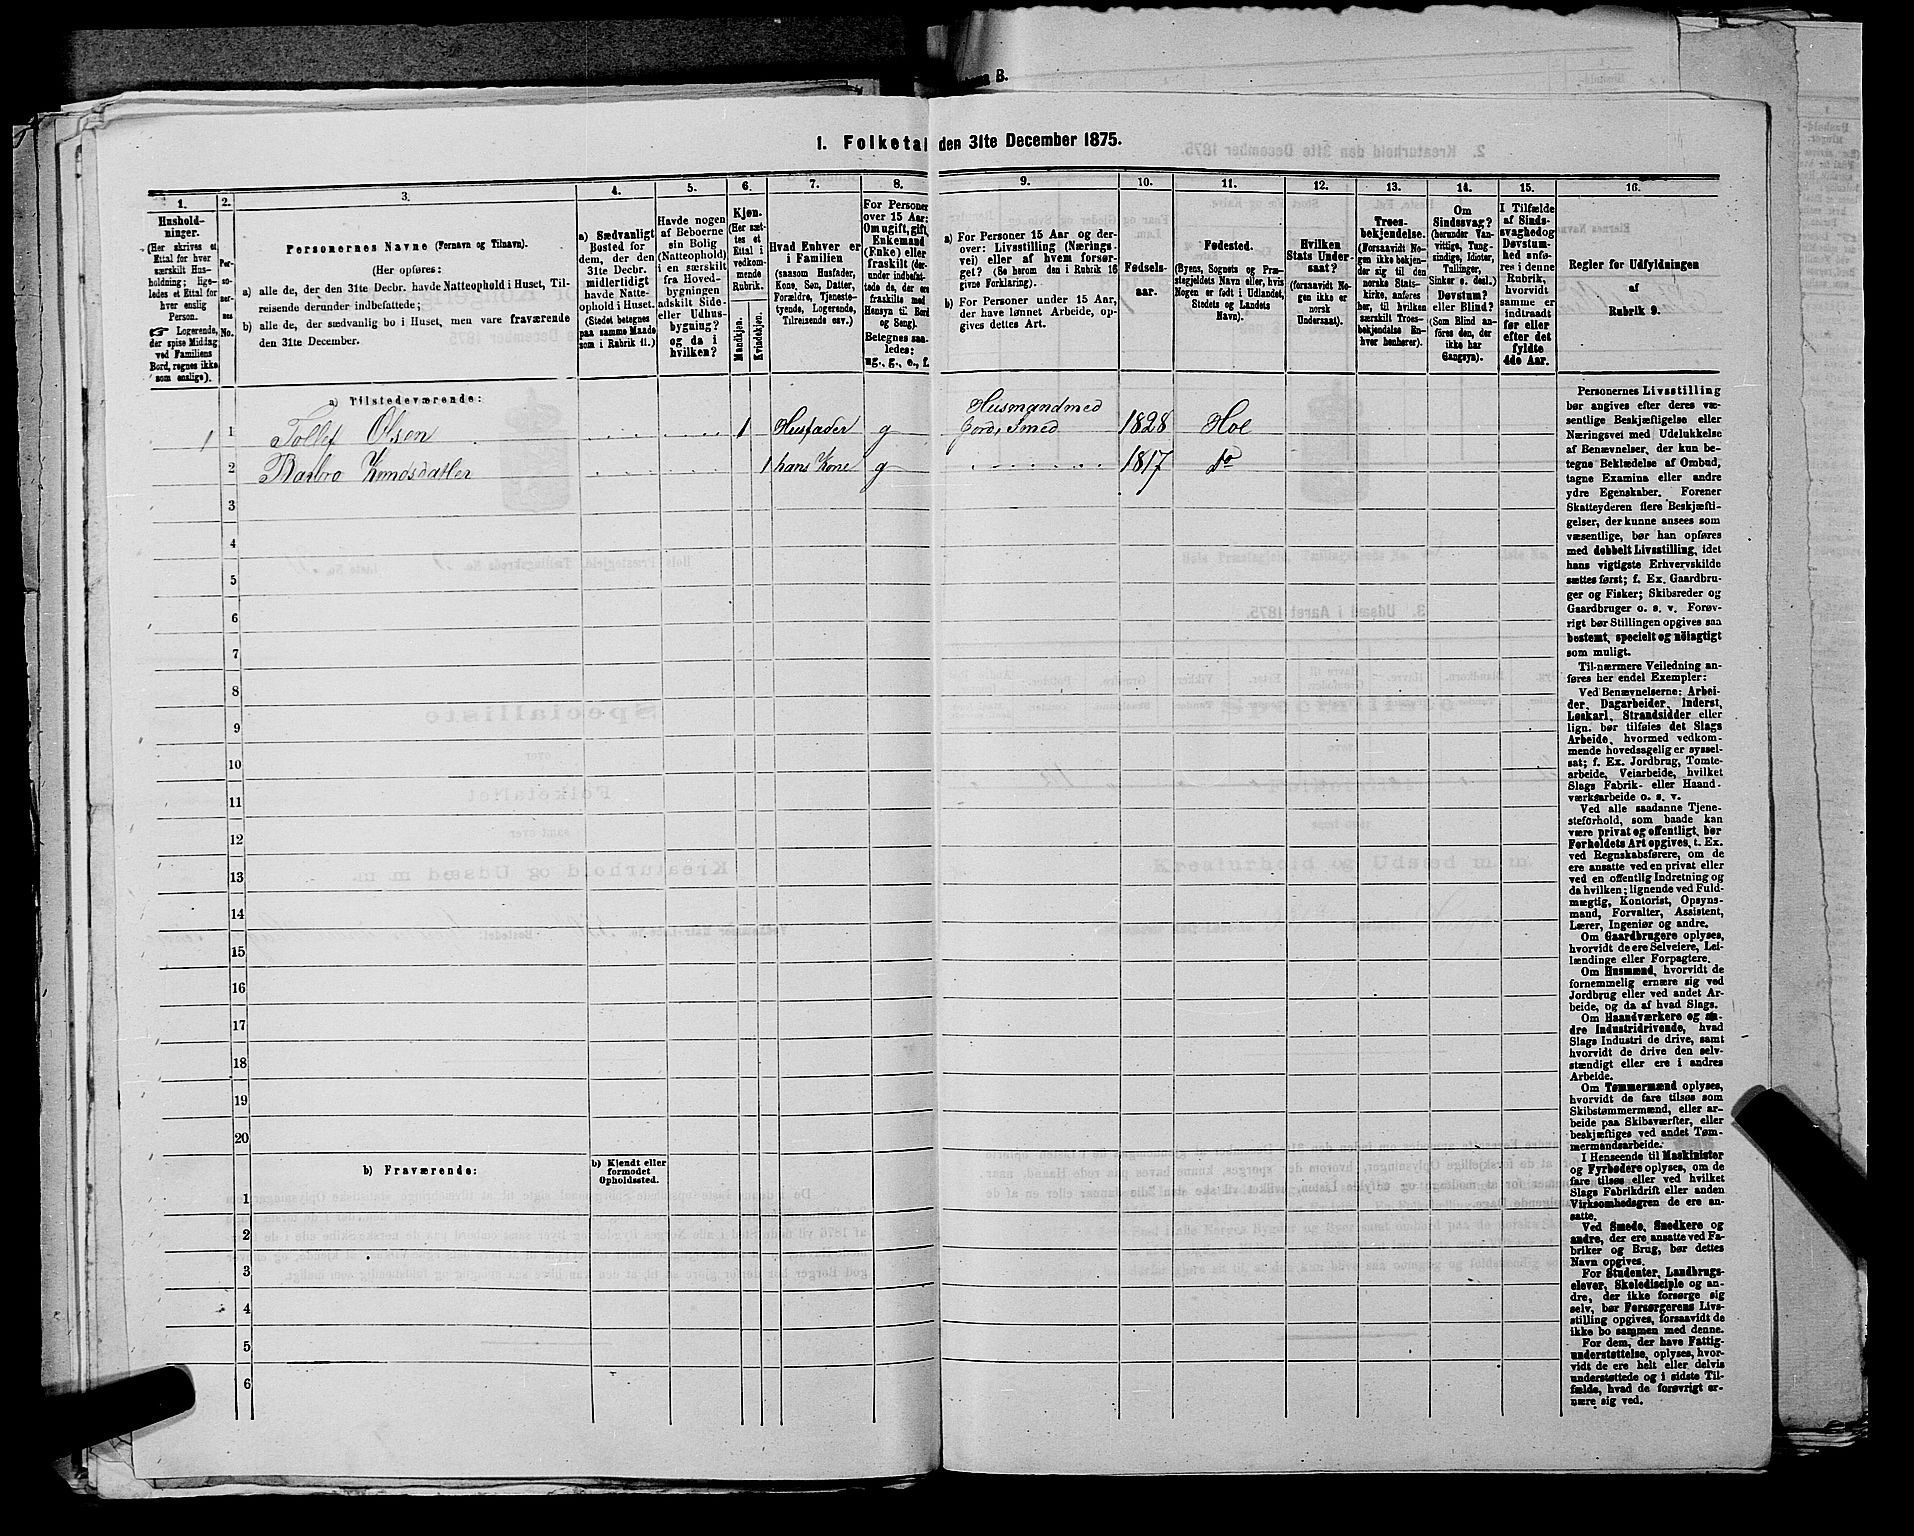 1. Folketal den 31te December 1875.
1.
Hushold-
ninger.
(Her skrives et
Ettal for hver
særskilt Hus-
holdning; lige-
ledes et Ettal for
hver enslig
Person.
☞ Logerende,
der spise Middag
ved Familiens
Bord, regnes ikke
som enslige).
2.
Per-
so-
ner-
nes
No.
3.
Personernes Navne (Fornavn og Tilnavn).
(Her opføres:
a) alle de, der den 31te Decbr. havde Natteophold i Huset, Til-
reisende derunder indbefattede;
b) alle de, der sædvanlig bo i Huset, men vare fraværende
den 31te December.
4.
a) Sædvanligt
Bosted for
dem, der den
31te Decbr.
midlertidigt
havde Natte-
ophold i Huset.
(Stedet betegnes
paa samme Maade
som i Rubrik 11.)
5.
Havde nogen
af Beboerne
sin Bolig
(Natteophold)
i en særskilt
fra Hoved-
bygningen
adskilt Side-
eller Udhus-
bygning?
og da i
hvilken?
6.
Kjøn.
(Her sæt-
tes et
Ettal i
vedkom-
mende
Rubrik.
Mandkjøn.
Kvindekjøn.
7.
Hvad Enhver er
i Familien
(saasom Husfader,
Kone, Søn, Datter,
Forældre, Tjeneste-
tyende, Logerende,
Tilreisende osv.)
8.
For Personer
over 15 Aar:
Om ugift, gift,
Enkemand
(Enke) eller
fraskilt (der-
under indbefat-
tede de, der ere
fraskilte med
Hensyn til Bord
og Seng).
Betegnes saa-
ledes:
ug., g., e., f.
9.
a) For Personer 15 Aar og der-
over: Livsstilling (Nærings-
vei) eller af hvem forsør-
get? (Se herom den i Rubrik 16
givne Forklaring).
b) For Personer under 15 Aar,
der have lønnet Arbeide, op-
gives dettes Art.
10.
Fødsels-
aar.
11.
Fødested.
(Byens, Sognets og Præ-
stegjeldets Navn eller, hvis
Nogen er født i Udlandet,
Stedets og Landets
Navn).
12.
Hvilken
Stats Under-
saat?
(forsaavidt No-
gen ikke er
norsk
Undersaat).
13.
Troes-
bekjendelse.
(Forsaavidt No-
gen ikke bekjen-
der sig til den
norske Stats-
kirke, anføres
her, til hvilken
særskilt Troes-
bekjendelse En-
hver henhører).
14.
Om
Sindssvag?
(herunder Van-
vittige, Tung-
sindige, Idioter,
Tullinger,
Sinker o. desl.)
Døvstum?
eller Blind?
(Som Blind an-
føres den, der
ikke har
Gangsyn).
15.
I Tilfælde
af Sinds-
svaghed og
Døvstum-
hed anfø-
res i denne
Rubrik,
hvorvidt
samme er
indtraadt
før eller
efter det
fyldte
4de Aar.
16.
Regler for Udfyldningen
af
Rubrik 9.
a) Tilstedeværende:
1 1 Tollef Olsen 1 Husfader g Husmand med
Jord, Smed 1828 Hol
2 Barbro Knudsdatter 1 hans Kone g 1817 do
3
4
5
6
7
8
9
10
11
12
13
14
15
16
17
18
19
20
b) Fraværende:
b) Kjendt eller
formodet
Opholdssted.
1
2
3
4
5
6
Personernes Livsstilling
bør angives efter deres væ-
sentlige Beskjæftigelse eller
Næringsvei med Udelukkelse
af Benævnelser, der kun be-
tegne Beklædelse af Ombud,
tagne Examina eller andre
ydre Egenskaber. Forener
Skatteyderen flere Beskjæfti-
gelser, der kunne ansees som
væsentlige, bør han opføres
med dobbelt Livsstilling, idet
hans vigtigste Erhvervskilde
sættes først; f. Ex. Gaardbru-
ger og Fisker; Skibsreder og
Gaardbruger o. s. v. Forøv-
rigt bør Stillingen opgives saa
bestemt, specielt og nøiagtigt
som muligt.
Til nærmere Veiledning an-
føres her endel Exempler:
Ved Benævnelserne: Arbei-
der, Dagarbeider, Inderst,
Løskarl, Strandsidder eller
lign. bør tilføies det Slags
Arbeide, hvormed vedkom-
mende hovedsagelig er syssel-
sat; f. Ex. Jordbrug, Tomte-
arbeide, Veiarbeide, hvilket
Slags Fabrik- eller Haand-
værksarbeide o. s. v.
Ved alle saadanne Tjene-
steforhold, som baade kan
være privat og offentligt, bør
Forholdets Art opgives, t. Ex.
ved Regnskabsførere, om de
ere ansatte ved en privat eller
ved en offentlig Indretning og
da hvilken; lignende ved Fuld-
mægtig, Kontorist, Opsyns-
mand, Forvalter, Assistent,
Lærer, Ingeniør og andre.
Om Gaardbrugere oplyses,
hvorvidt de ere Selveiere, Lei-
lændinge eller Forpagtere.
Om Husmænd, hvorvidt de
fornemmelig ernære sig ved
Jordbrug eller ved andet Ar-
beide, og da af hvad Slags.
Om Haandværkere og an-
dre Industridrivende, hvad
Slags Industri de drive, samt
hvorvidt de drive den selv-
stændigt eller ere i andres
Arbeide.
Om Tømmermænd oplyses,
hvorvidt de fare tilsøs som
Skibstømmermænd, eller ar-
beide paa Skibsværfter, eller
beskjæftiges ved andet Tøm-
mermandsarbeide.
I Henseende til Maskinister
og Fyrbødere oplyses, om de
fare tilsøs eller ved hvilket
Slags Fabrikdrift eller anden
Virksomhedsgren de ere an-
satte.
Ved Smede, Snedkere og
andre, der ere ansatte ved Fa-
briker og Brug, bør dettes
Navn opgives.
For Studenter, Landbrugs-
elever, Skoledisciple og an-
dre, der ikke forsørge sig
selv, bør Forsørgerens Livs-
stilling opgives, forsaavidt de
ikke bo sammen med denne.
For dem, der have Fattig-
understøttelse, oplyses, hvor-
vidt de ere helt eller delvis
understøttede og i sidste Til-
fælde, hvad de forøvrigt er-
nære sig ved.